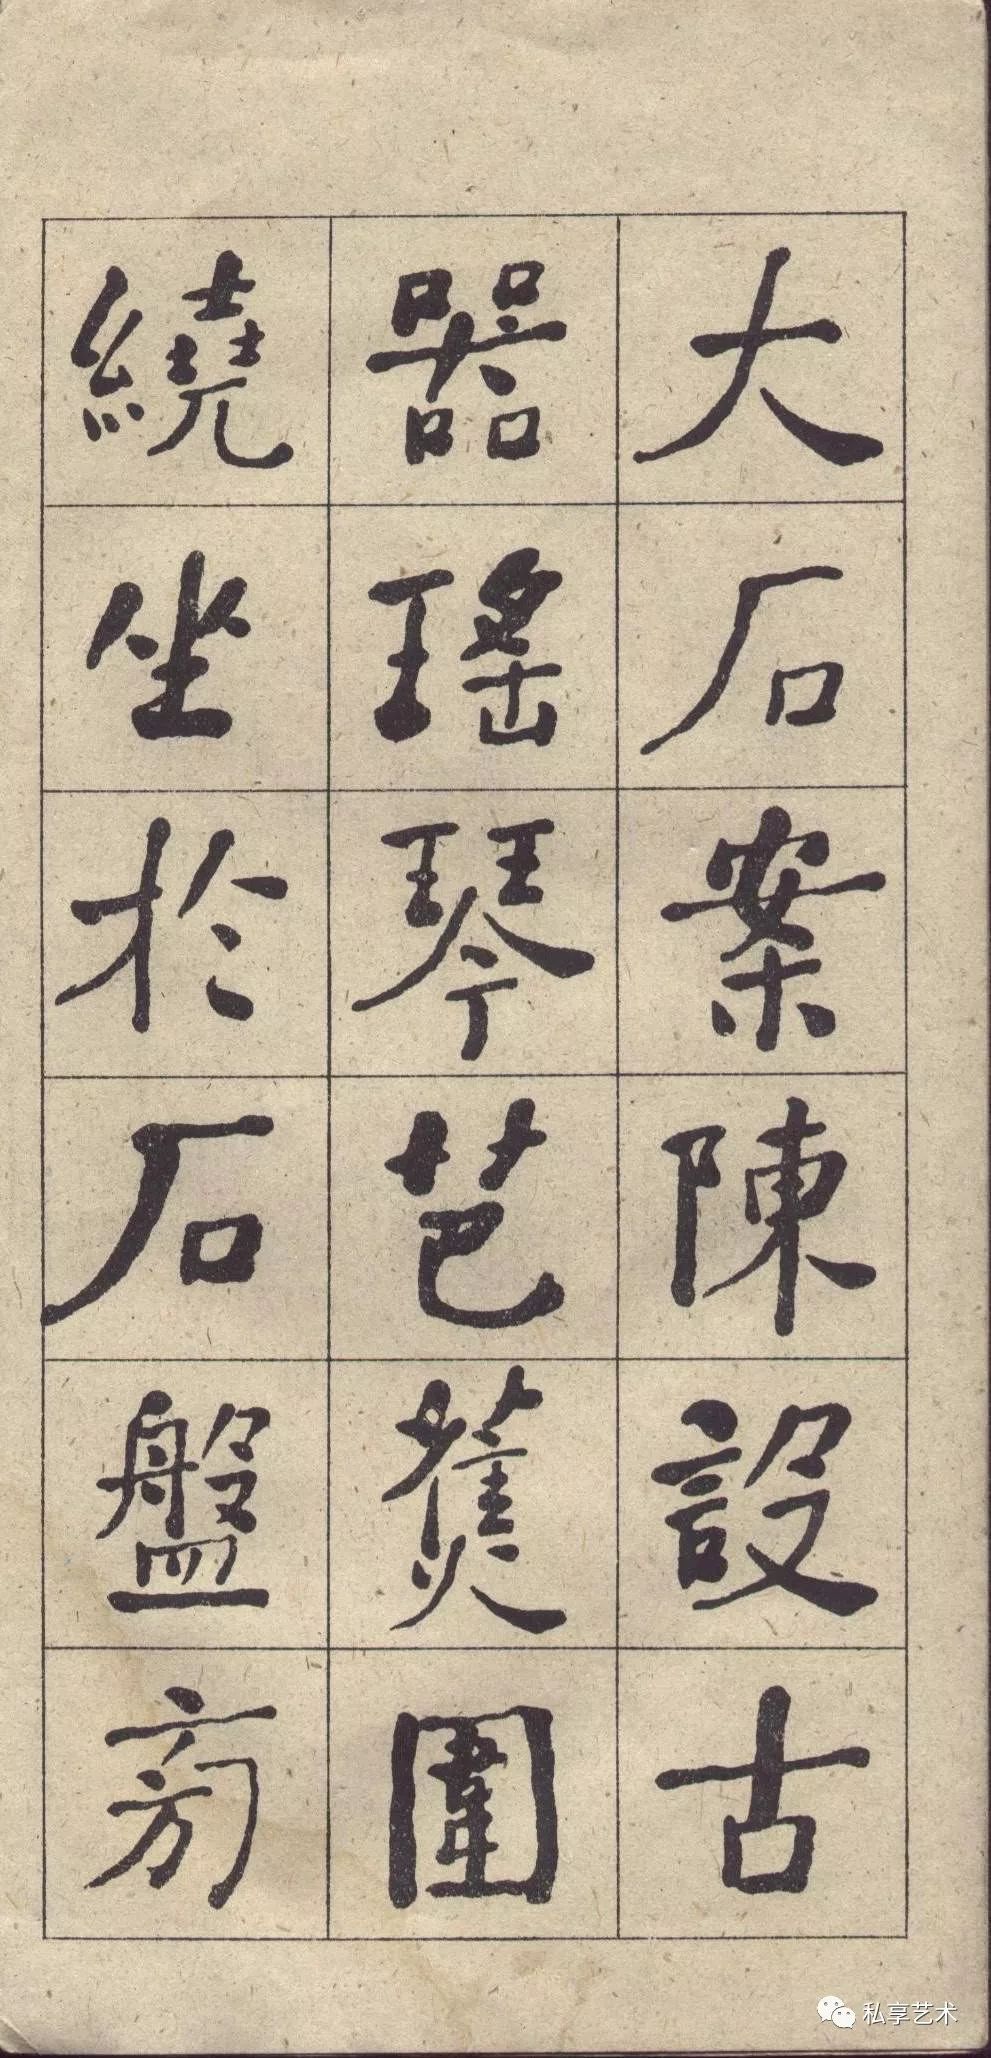 大石案陳設古
器瑤琴芭蕉圍
繞坐於石盤旁
私享艺术